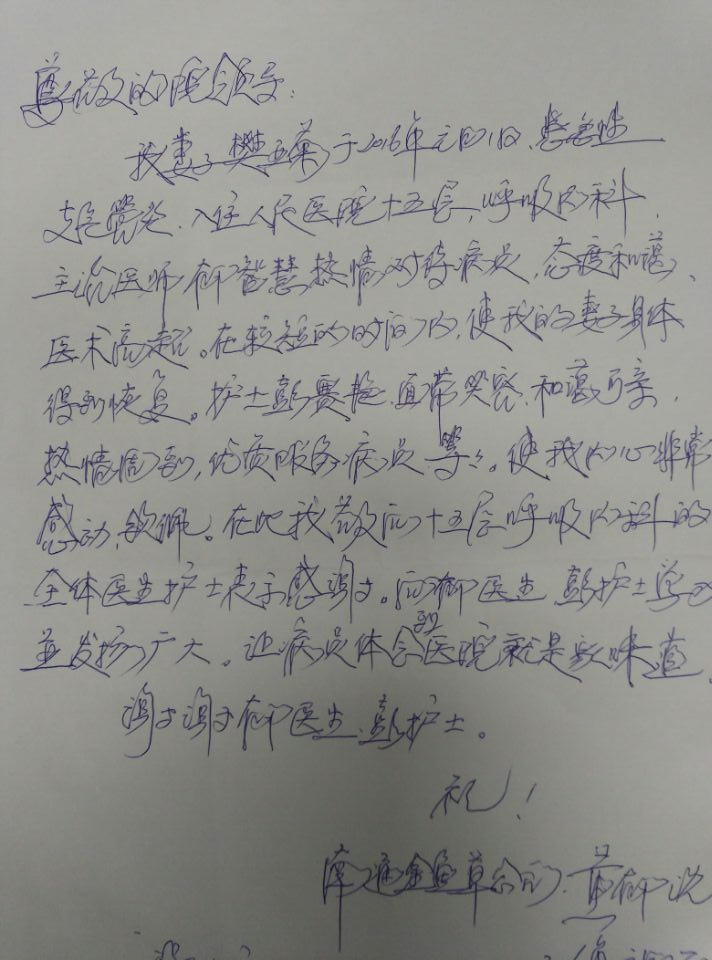 尊敬的院领导:
我妻子樊 于2016年元月1日, 急性
支气管炎、入住人民医院十五层,呼吸内科,
主治医师 智慧热情对待病员,态度和蔼、
医术高超。在较短的时间内,使我的妻子身体
得到恢复。护士彭 艳,面带笑容,和蔼可亲,
热情周到,优质服务病员等等。使我内心非常
感动,钦佩。在此我敬向十五层呼吸内科的
全体医生护士表示感谢。向 医生 彭护士学习
並发扬广大。让病员体会到医院就是家味道
谢谢 医生、彭护士。
祝!